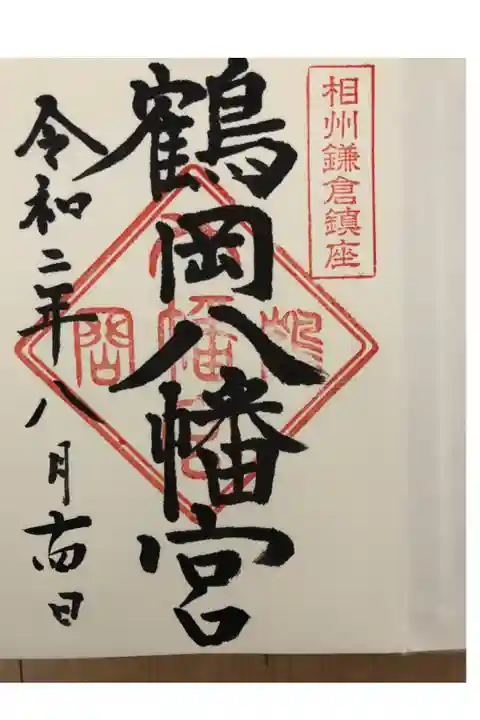 相州鎌倉鎮座
鶴岡八幡宮
令和二年八月十四日